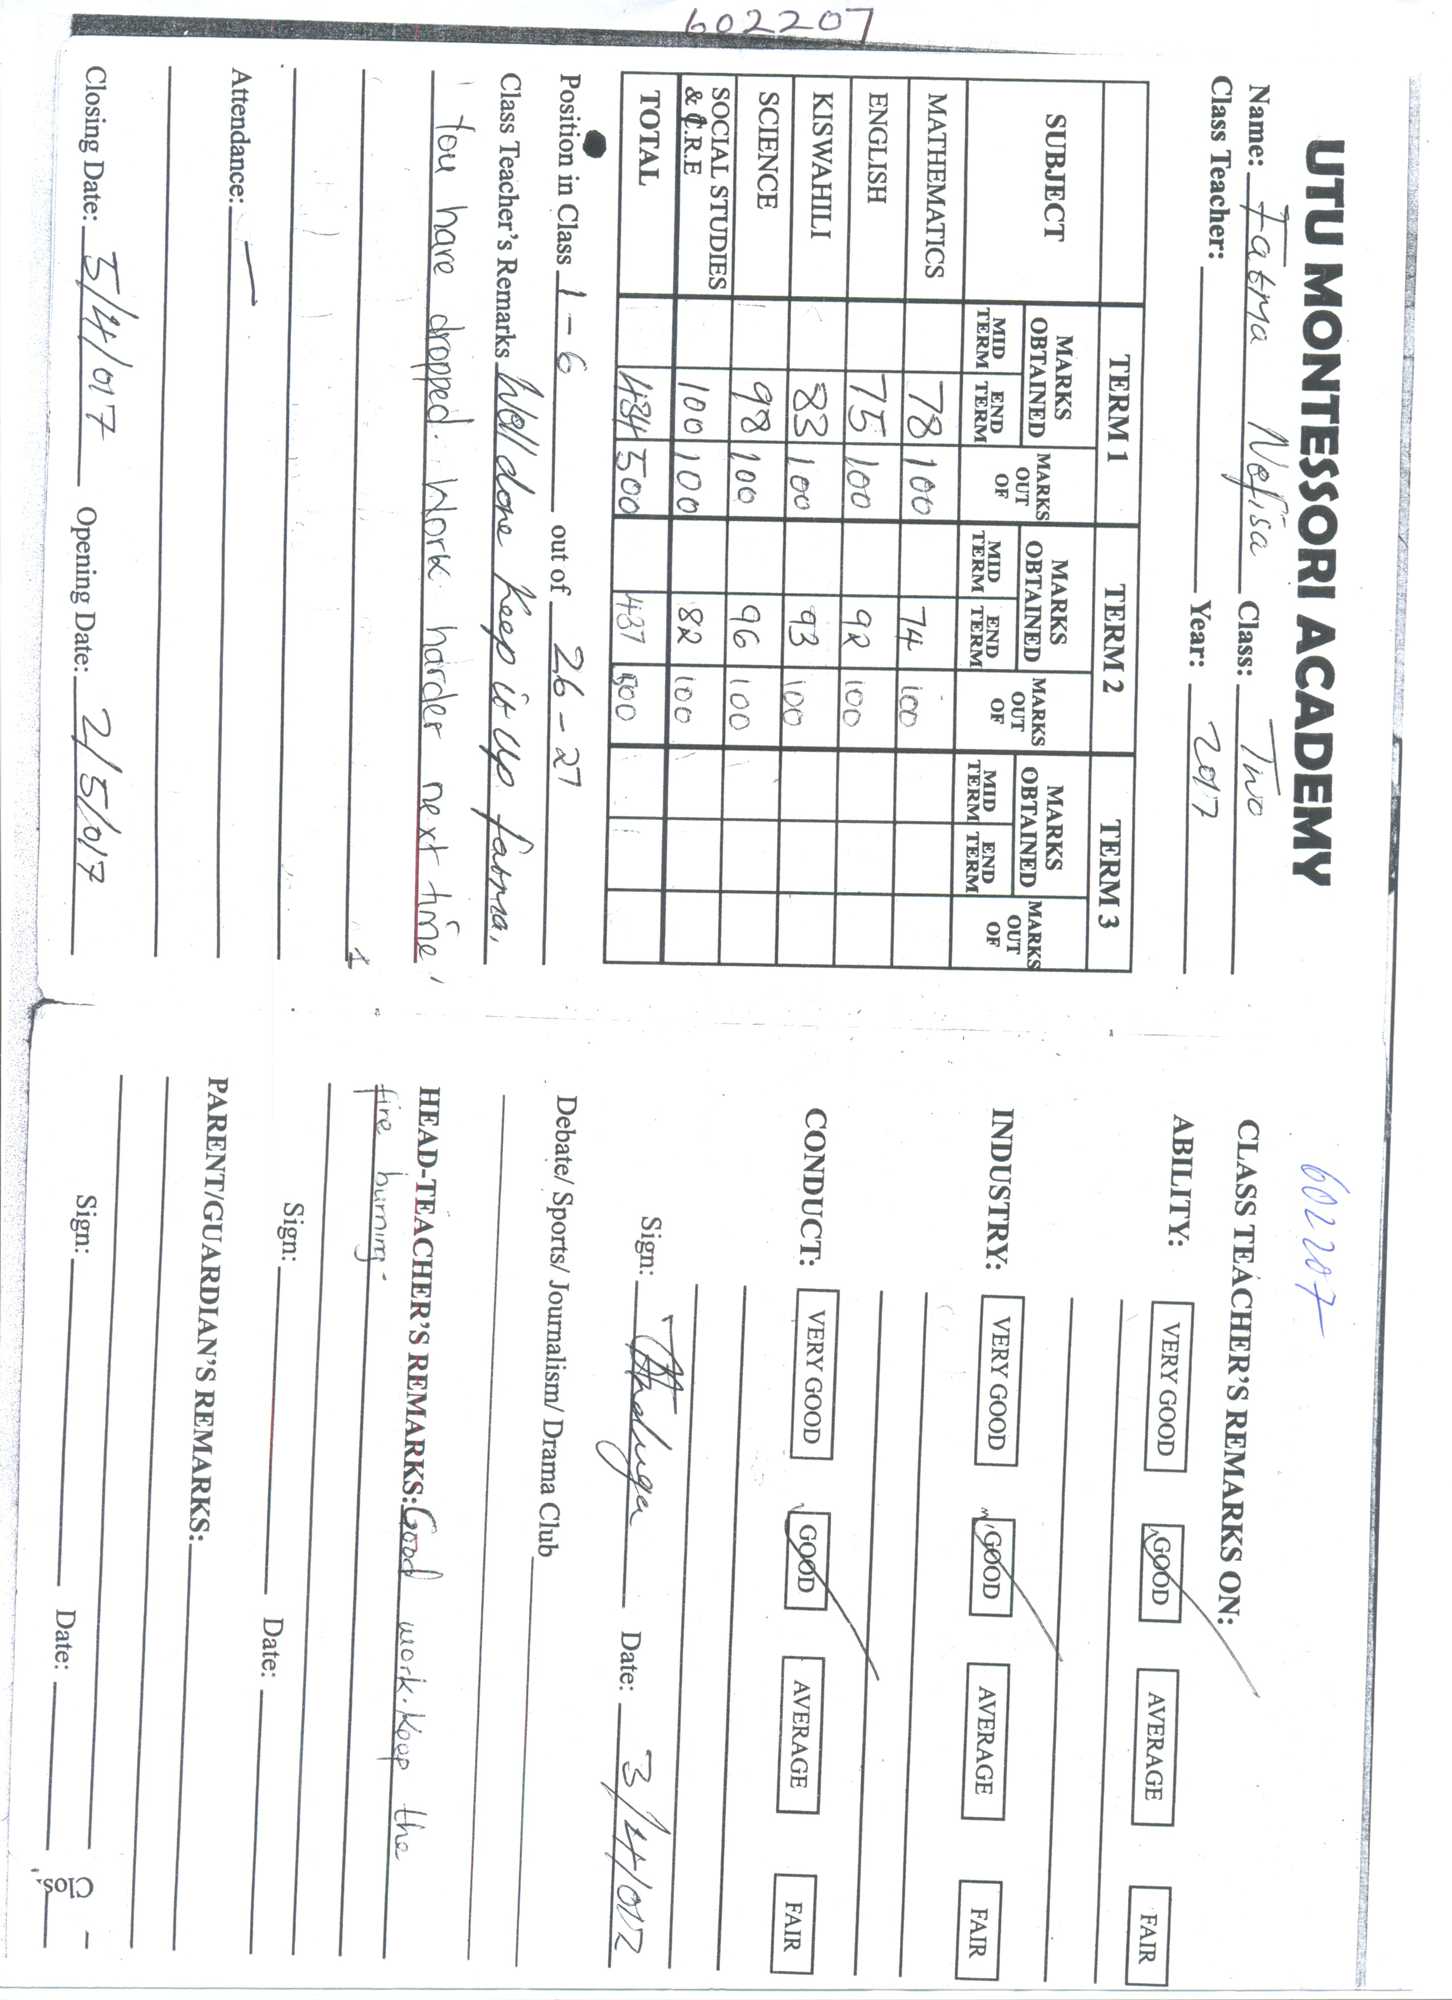 602207
UTU MONTESSORI ACADEMY
Name: Fatma Nefisa Class: Two
Class Teacher: Year: 2017
TERM 1 TERM 2 TERM 3
SUBJECT MARKS OBTAINED MARKS OUT OF MARKS OBTAINED MARKS OUT OF MARKS OBTAINED MARKS OUT OF
MID TERM END TERM MID TERM END TERM MID TERM END TERM
MATHEMATICS 78 100 74 100
ENGLISH 75 100 92 100
KISWAHILI 83 100 93 100
SCIENCE 98 100 96 100
SOCIAL STUDIES & C.R.E 100 100 82 100
TOTAL 434 500 437 500
Position in Class 1 - 6 out of 26 - 27
Class Teacher's Remarks Well done keep it up fatma,
You have dropped. Work harder next time
Attendance: —
Closing Date: 5/4/017 Opening Date: 2/5/017
602207
CLASS TEACHER'S REMARKS ON:
ABILITY: VERY GOOD GOOD AVERAGE FAIR
INDUSTRY: VERY GOOD GOOD AVERAGE FAIR
CONDUCT: VERY GOOD GOOD AVERAGE FAIR
Sign: Date: 3/4/017
Debate/ Sports/ Journalism/ Drama Club
HEAD-TEACHER'S REMARKS: Good work. Keep the
fire burning.
Sign: Date:
PARENT/GUARDIAN'S REMARKS:
Sign: Date:
Clos